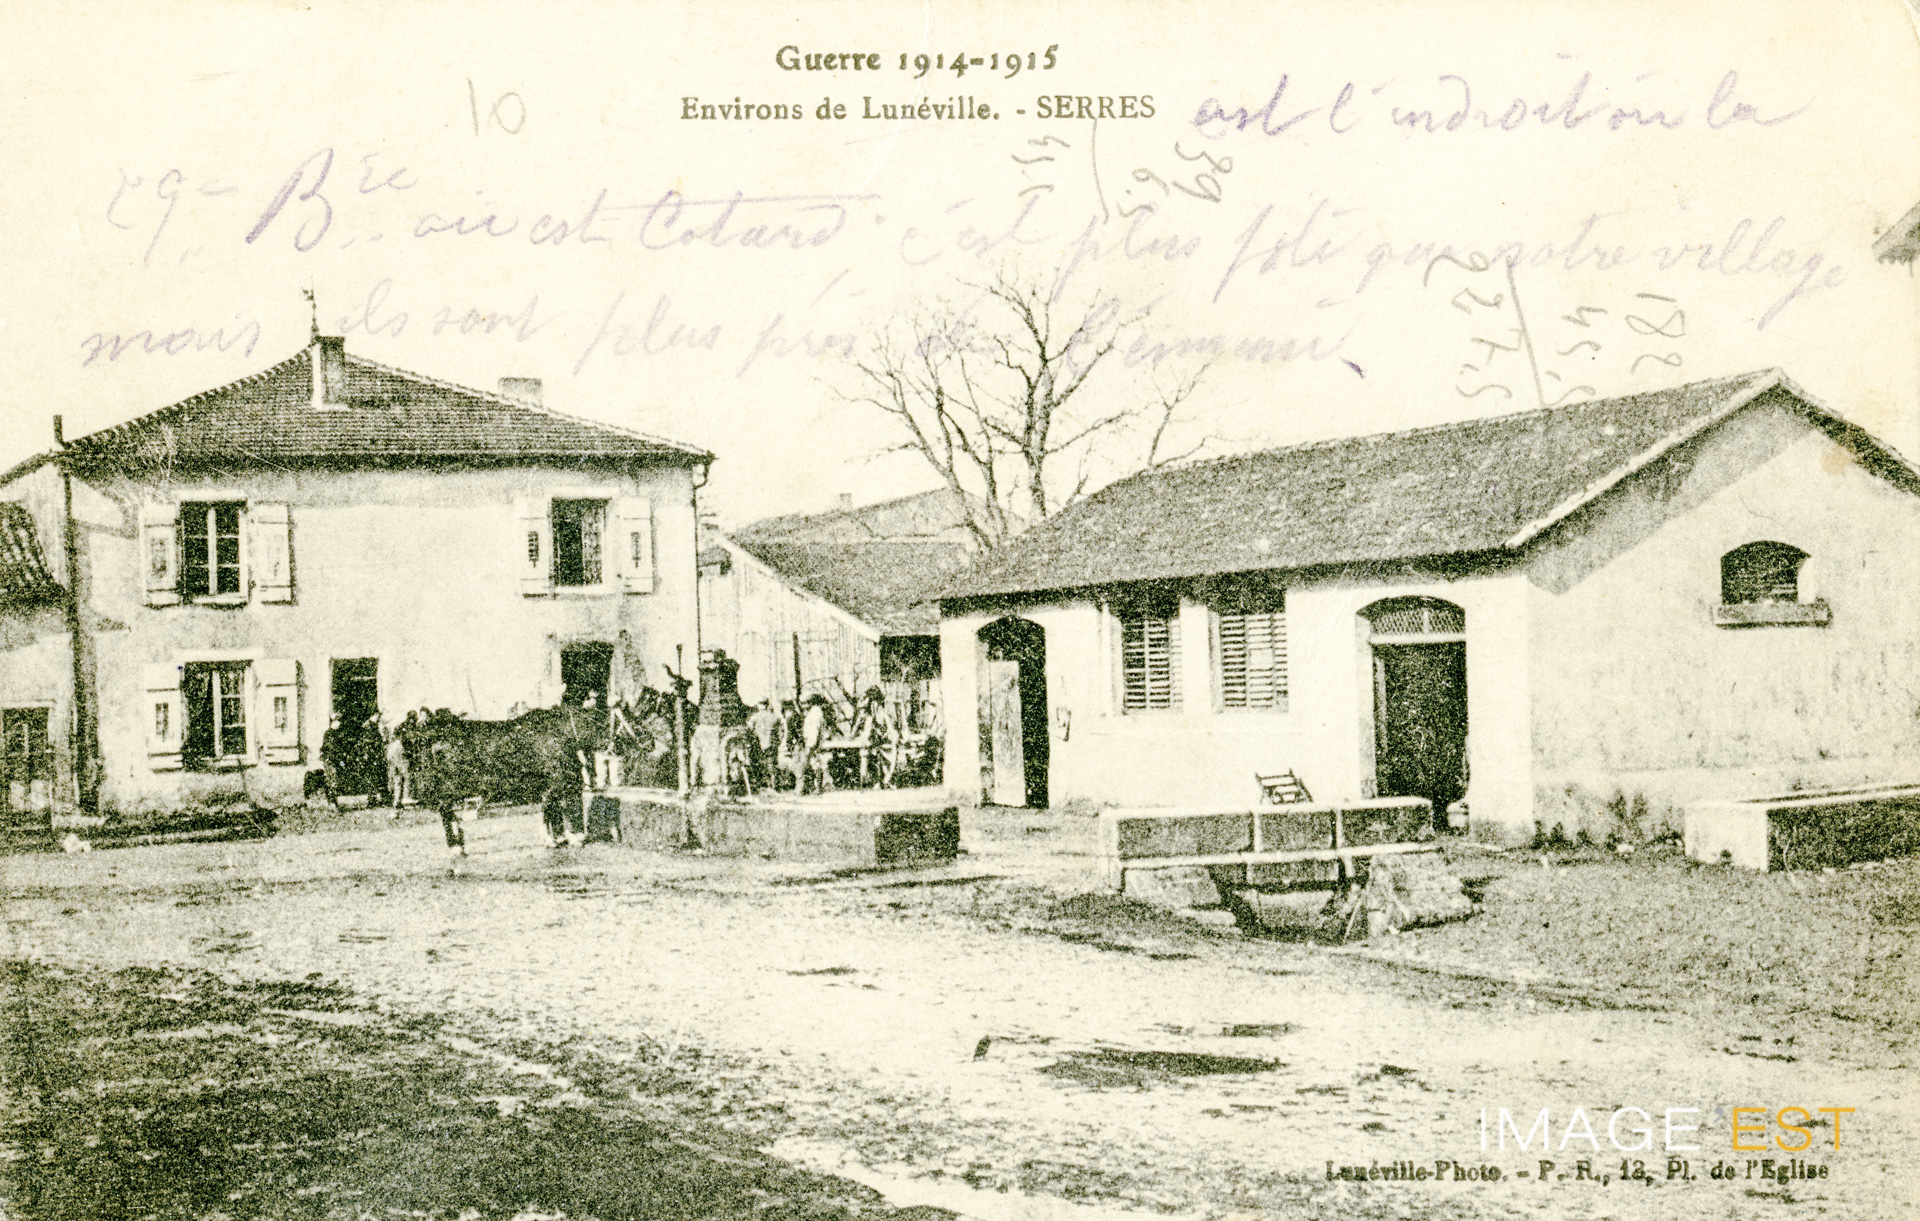 Guerre 1914-1915
Environs de Lunéville. - SERRES
est l'indroit où la
29e Bie où est Cotard c'est plus joli que notre village
mais ils sont plus près de l'ennemi
10
IMAGE EST
Lunéville-Photo. - P. R., 12, Pl. de l'Eglise